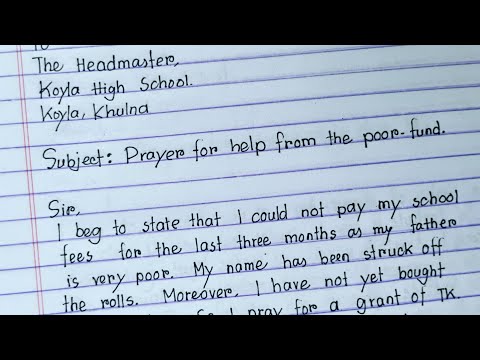 To
The Headmaster,
Koyla High School.
Koyla, Khulna
Subject: Prayer for help from the poor-fund.
Sir,
I beg to state that I could not pay my school
fees for the last three months as my father
is very poor. My name has been struck off
the rolls. Moreover, I have not yet bought
So I pray for a grant of TK.